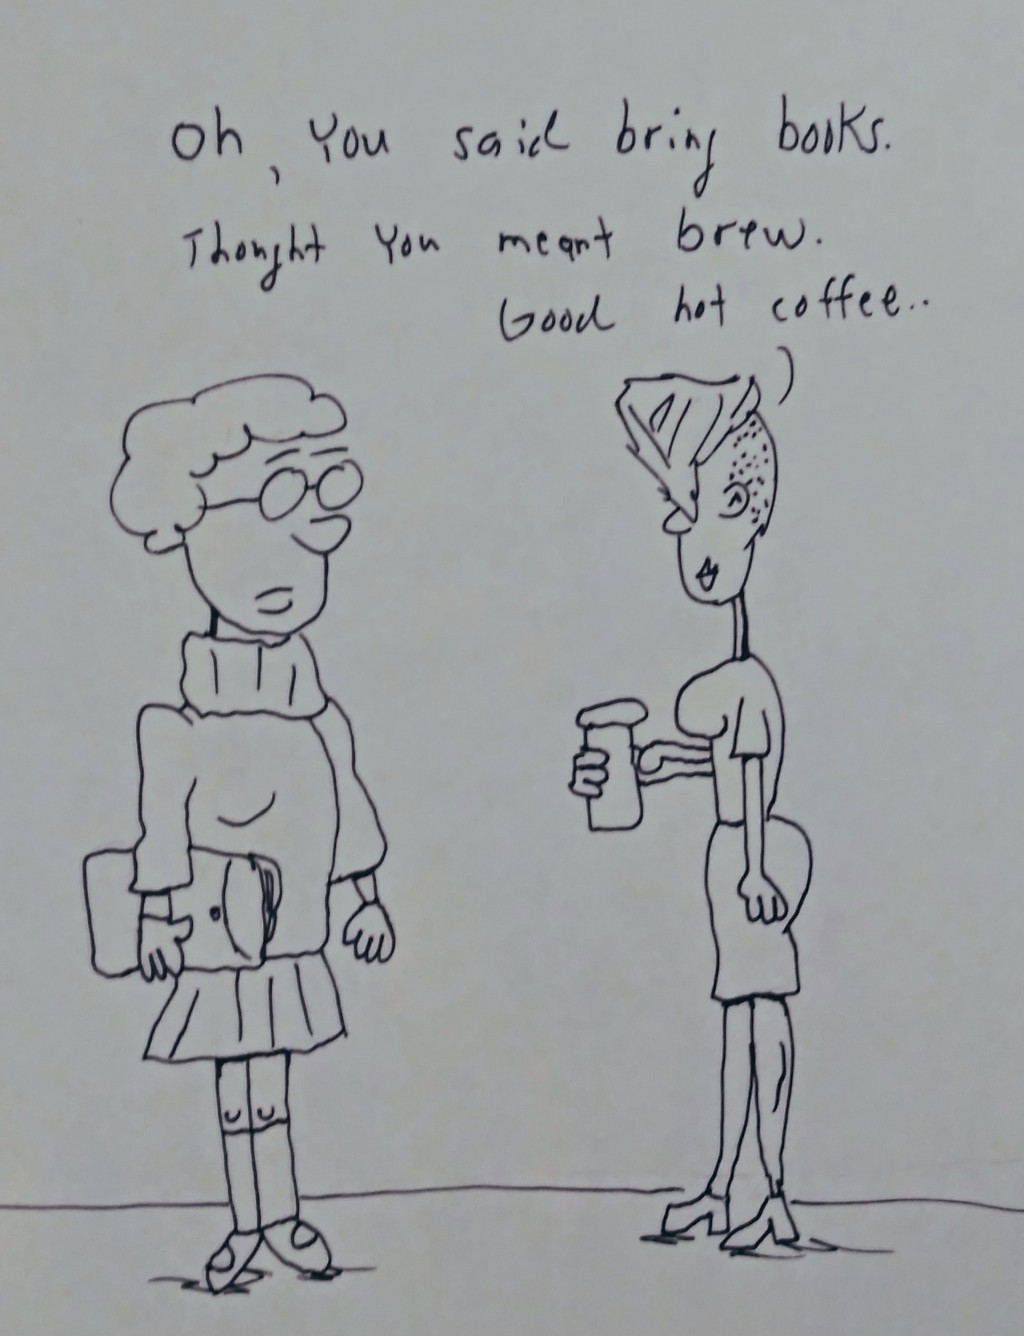 Oh, You said bring books.
Thought You meant brew.
Good hot coffee..